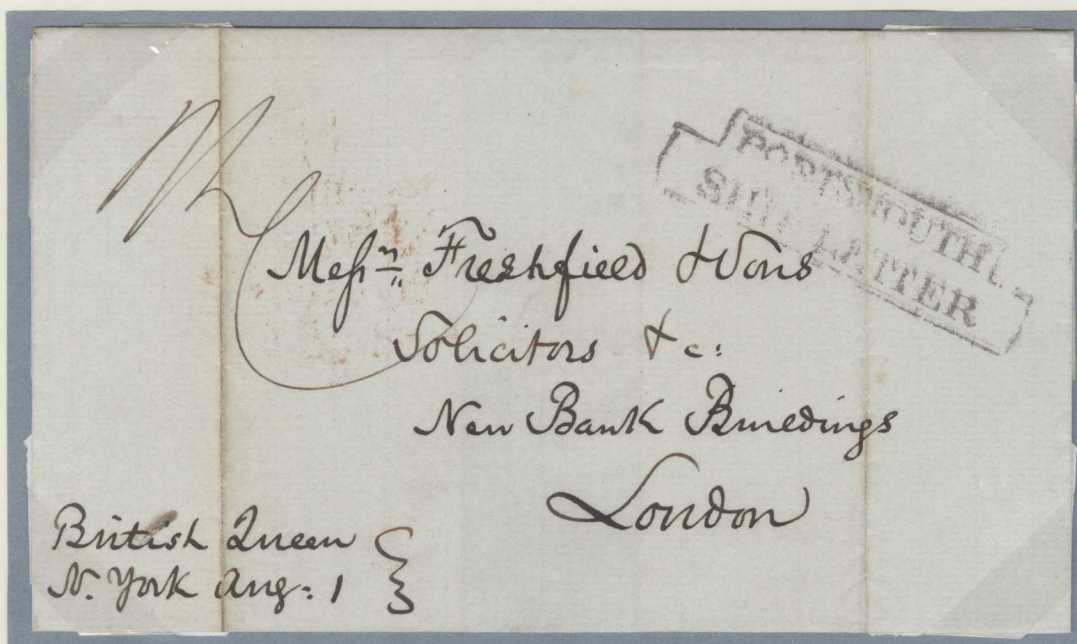 PORTSMOUTH
SHIP LETTER
Messrs. Freshfield & Sons
Solicitors &c:
New Bank Buildings
London
British Queen
N. York Aug: 1